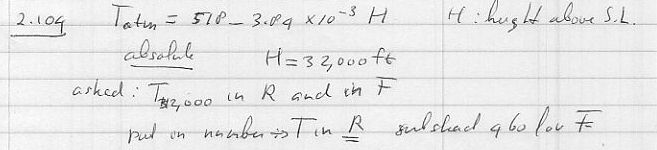 2.104 Tatm = 518 - 3.84 x10⁻³ H H: height above S.L.
absolute H=32,000ft
asked: T32,000 in R and in F
put in number => T in R subtract 460 for F